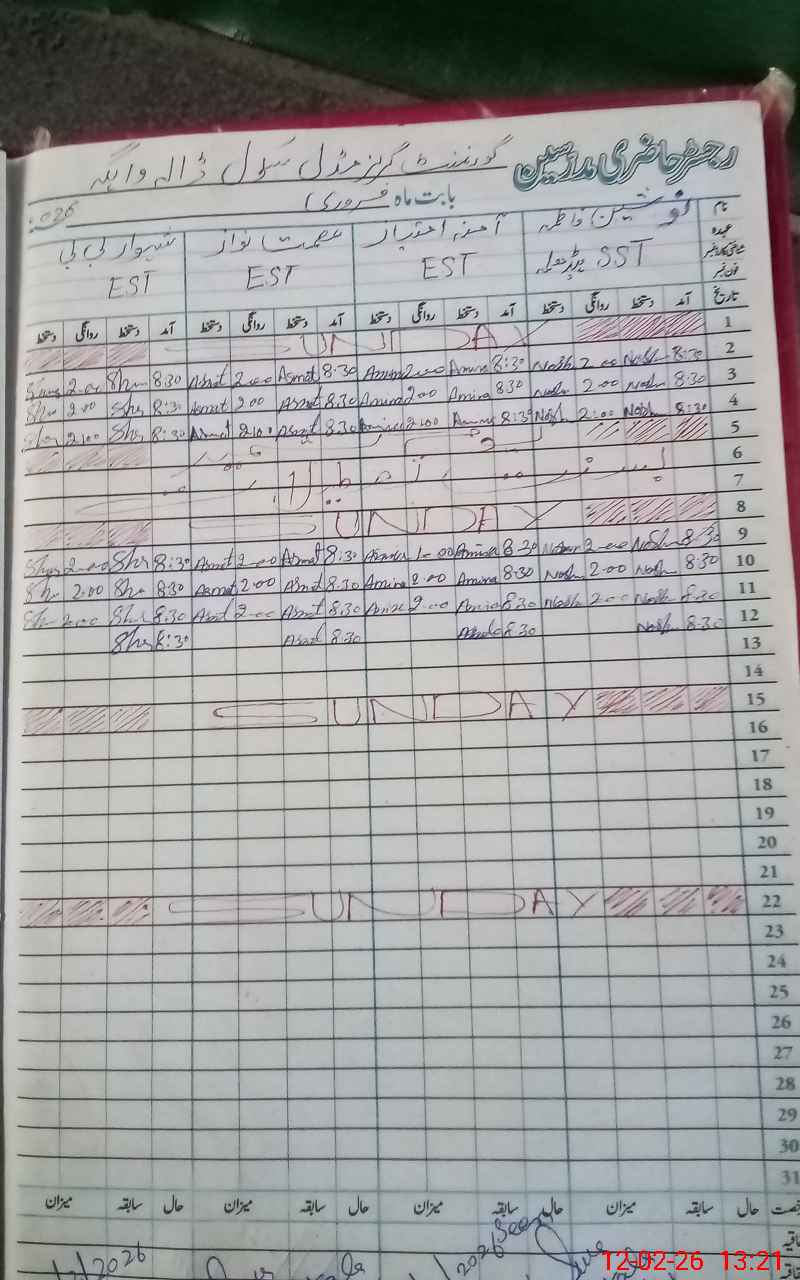 رجسٹر حاضری مدرسین گورنمنٹ گرلز مڈل سکول ڈالہ واہگہ
بابت ماہ فروری 2026
نام نوشین فاطمہ آمنہ امتیاز عصمت نواز شہوار بی بی
عہدہ SST EST EST EST
فون نمبر
تاریخ آمد دستخط روانگی دستخط آمد دستخط روانگی دستخط آمد دستخط روانگی دستخط آمد دستخط روانگی دستخط
1 SUNDAY
2 8:30 Nosh 2:00 Nosh 8:30 Amina 2:00 Amina 8:30 Asmat 2:00 Asmat 8:30 Shr 2:00
3 8:30 Nosh 2:00 Nosh 8:30 Amina 2:00 Amina 8:30 Asmat 2:00 Asmat 8:30 Shr 2:00 Shr
4 8:30 Nosh 2:00 Nosh 8:30 Amina 2:00 Amina 8:30 Asmat 2:00 Asmat 8:30 Shr 2:00 Shr
5
6
7
8 SUNDAY
9 8:30 Nosh 2:00 8:30 Amina 1:00 Amina 8:30 Asmat 2:00 Asmat 8:30 Shr 2:00 Shr
10 8:30 Nosh 2:00 Nosh 8:30 Amina 2:00 Amina 8:30 Asmat 2:00 Asmat 8:30 Shr 2:00 Shr
11 8:30 Nosh 2:00 Nosh 8:30 Amina 2:00 Amina 8:30 Asmat 2:00 Asmat 8:30 Shr 2:00 Shr
12 8:30 Nosh 8:30 8:30 Asmat 8:30 Shr
13
14
15 SUNDAY
16
17
18
19
20
21
22 SUNDAY
23
24
25
26
27
28
29
30
31
حال سابقہ میزان حال سابقہ میزان حال سابقہ میزان حال سابقہ میزان
Seen
2026 2026
12-02-26 13:21